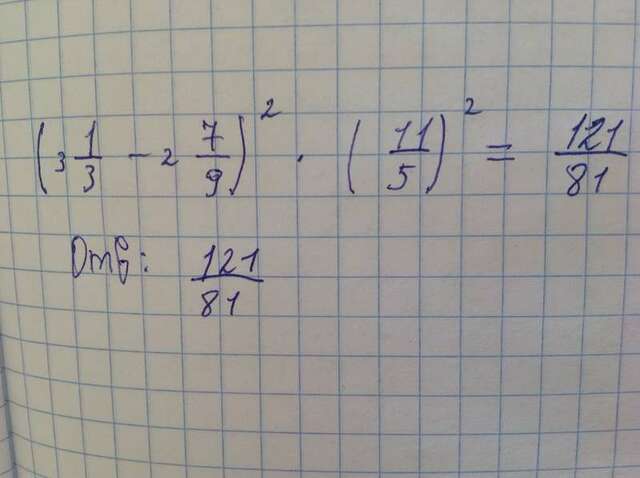 (3 1/3 - 2 7/9)² · (11/5)² = 121/81
Отв: 121/81